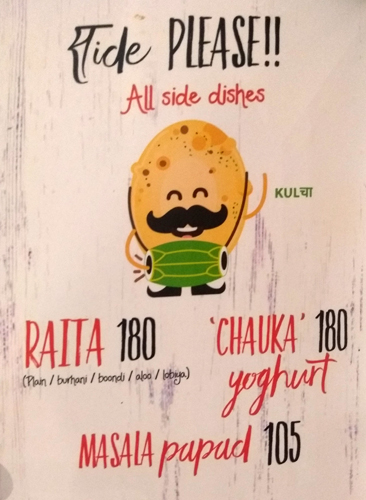 साide PLEASE!!
All side dishes
KULचा
RAITA 180
(Plain / burhani / boondi / aloo / lobiya)
'CHAUKA' 180
yoghurt
MASALA papad 105